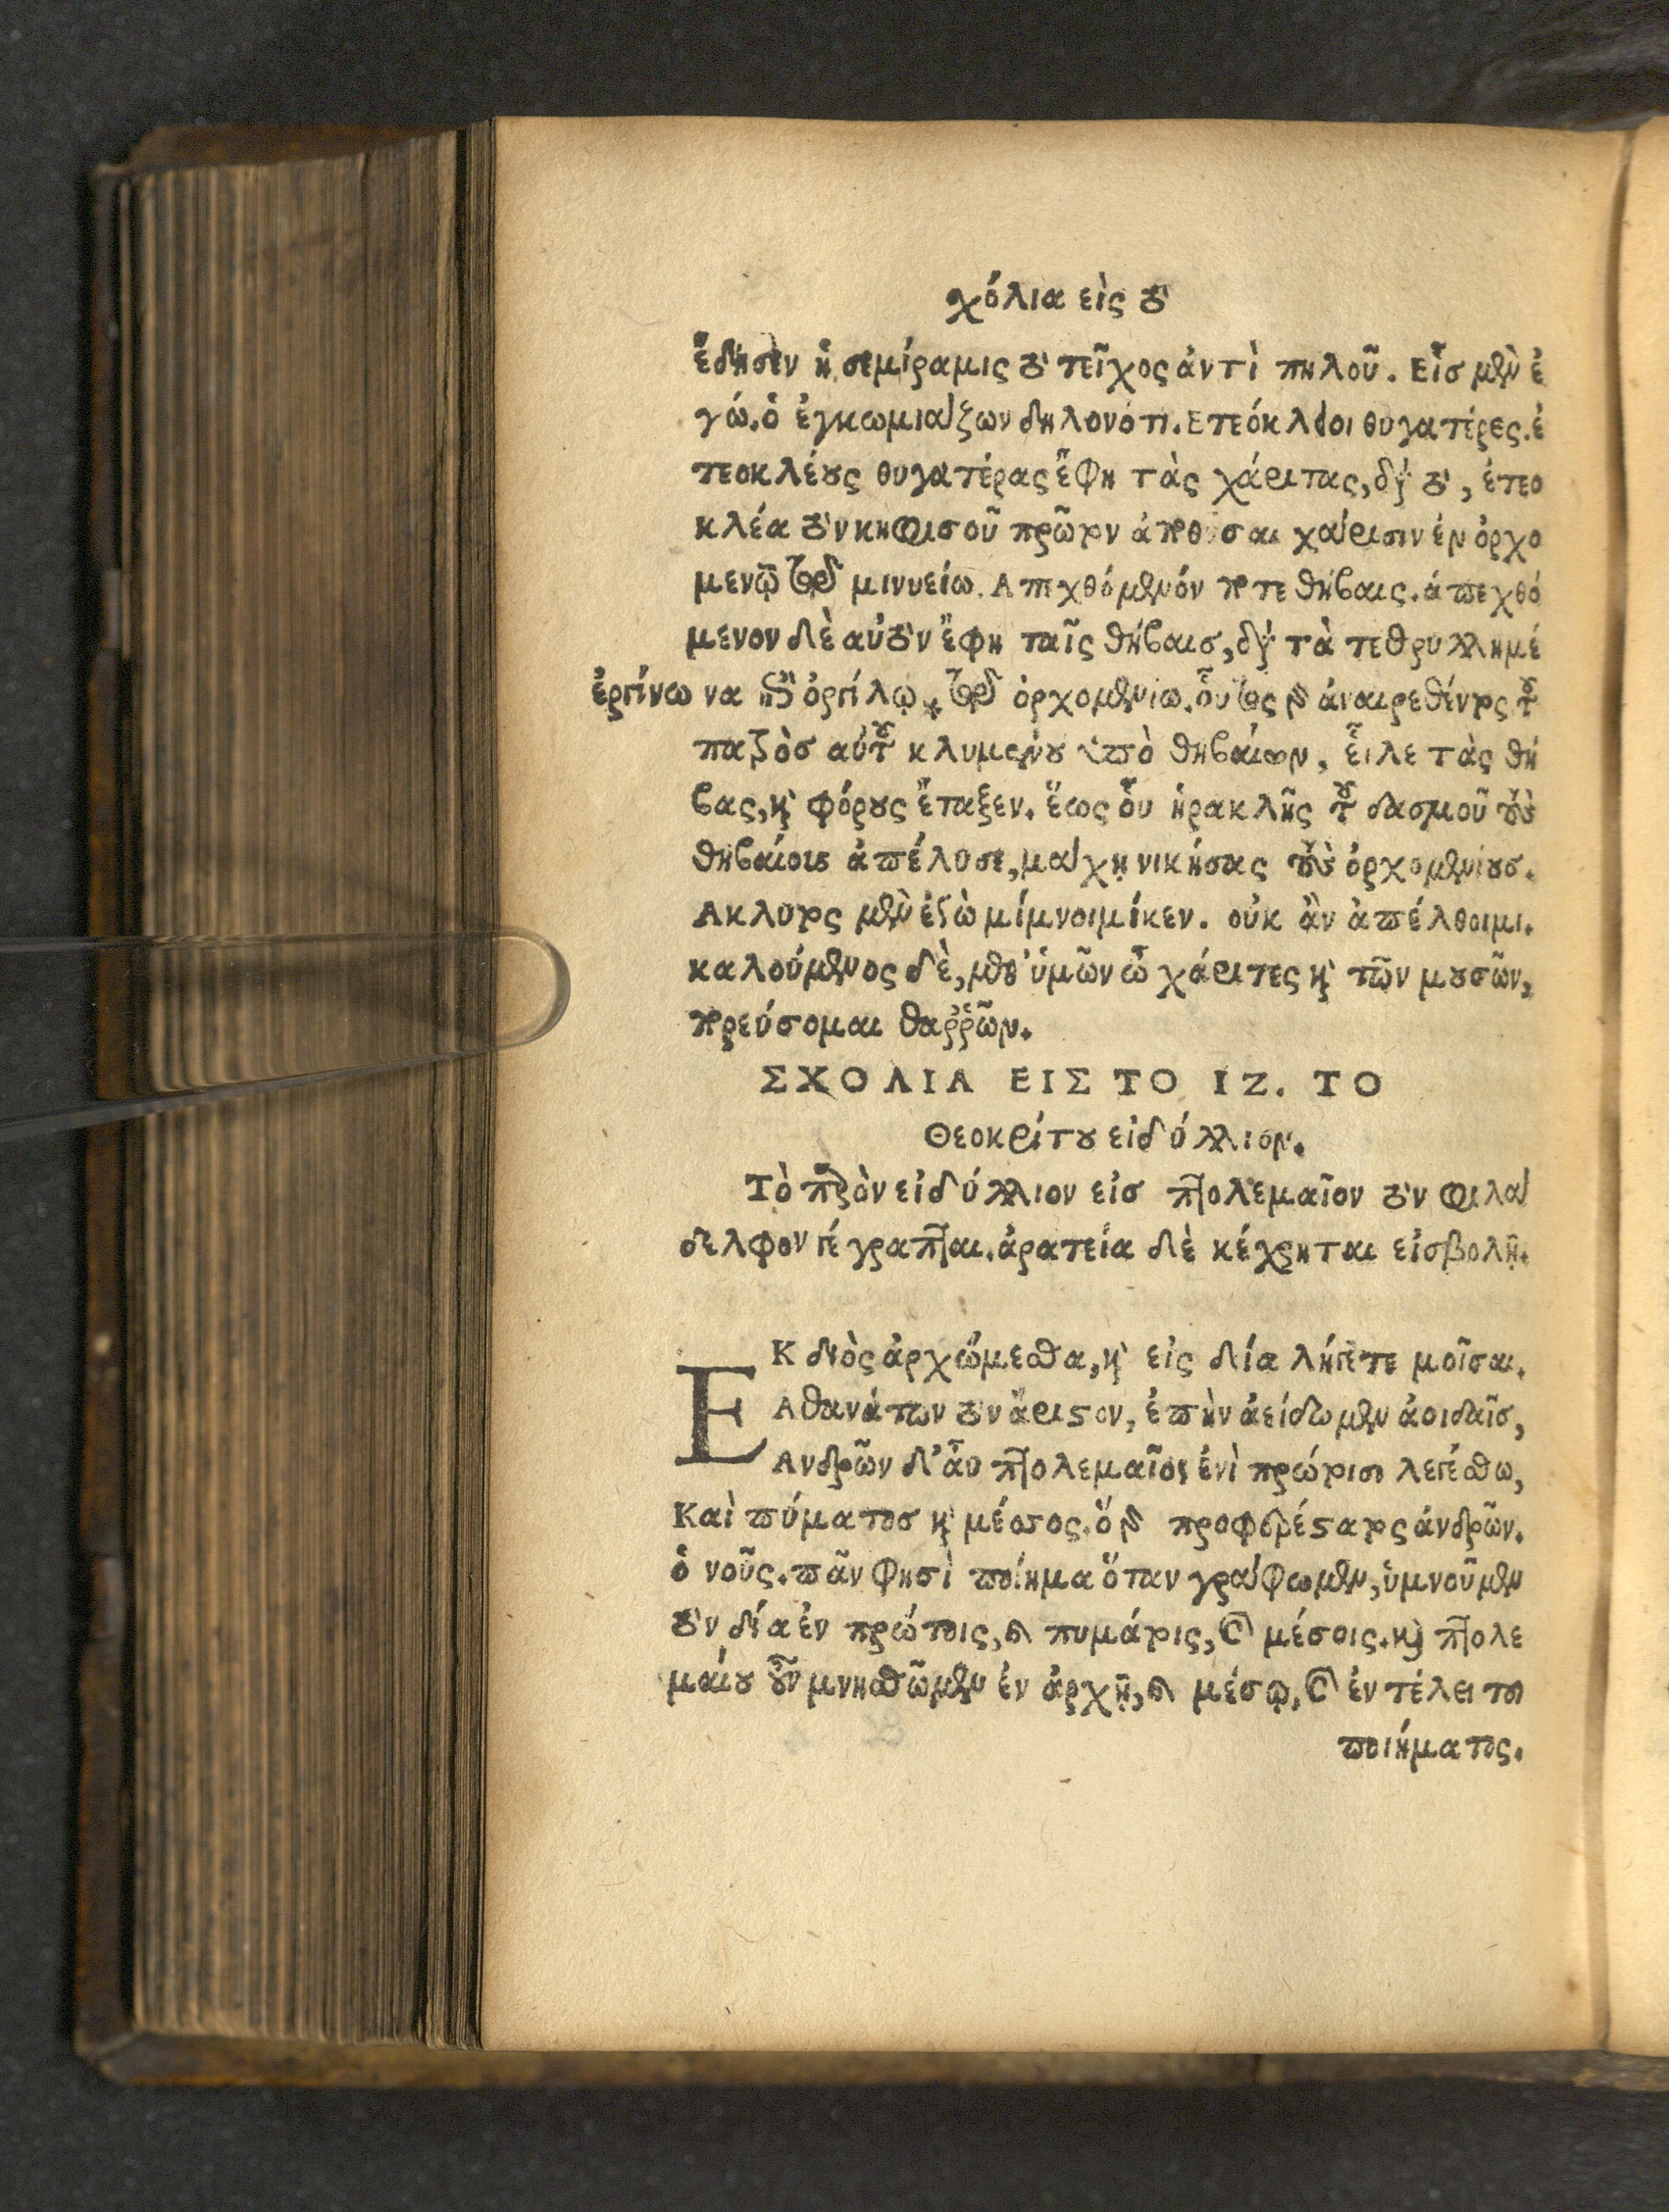 σχόλια εἰς τὸ
ἔδησεν ἡ σεμίραμις τὸ τεῖχος ἀντὶ πηλοῦ. Εἷσ μὲν ἐ
γώ. ὁ ἐγκωμιάζων δηλονότι. Ετεόκλειοι θυγατέρες. ἐ
τεοκλέους θυγατέρας ἔφη τὰς χάριτας, διὰ τὸ, ἐτεο
κλέα τὸν κηφισοῦ πρῶτον θῦσαι χάρισιν ἐν ὀρχο
μενῷ τῷ μινυείω. Απεχθόμενόν ποτε θήβαις. ἀπεχθό
μενον δὲ αὐτὸν ἔφη ταῖς θήβαισ, διὰ τὰ τεθρυλλημέ
ἐργίνω να ἐπὶ ὀργίλῳ * τῷ ὀρχομενίω. οὗτος γὰρ ἀναιρεθέντος τοῦ
πατρὸσ αὐτοῦ κλυμένου ὑπὸ θηβαίων, εἷλε τὰς θή
βας, καὶ φόρους ἔταξεν. ἕως οὗ ἡρακλῆς τοῦ δασμοῦ τοὺς
θηβαίους ἀπέλυσε, μάχῃ νικήσας τοὺς ὀρχομενίουσ.
Ακλητος μὲν ἐγὼ μίμνοιμί κεν. οὐκ ἂν ἀπέλθοιμι.
καλούμενος δὲ, μεθ' ὑμῶν ὦ χάριτες καὶ τῶν μουσῶν,
πορεύσομαι θαῤῥῶν.
ΣΧΟΛΙΑ ΕΙΣ ΤΟ ΙΖ. ΤΟ
Θεοκρίτου εἰδύλλιον.
Τὸ παρὸν εἰδύλλιον εἰσ πτολεμαῖον τὸν φιλά
δελφον γέγραπται. ἀρατεία δὲ κέχρηται εἰσβολῇ.
ΕΚ διὸς ἀρχώμεσθα, καὶ εἰς δία λήγετε μοῖσαι.
Αθανάτων τὸν ἄριστον, ἐπὴν ἀείδωμεν ἀοιδαῖσ,
Ανδρῶν δ' ἂυ πτολεμαῖος ἐνὶ πρώτοισι λεγέσθω,
Καὶ πύματοσ καὶ μέσσος. ὁ γὰρ προφερέστατος ἀνδρῶν.
ὁ νοῦς. πᾶν φησὶ ποίημα ὅταν γράφωμεν, ὑμνοῦμεν
τὸν δία ἐν πρώτοις, καὶ πυμάτοις, καὶ μέσοις. καὶ πτολε
μαίου οὖν μνησθῶμεν ἐν ἀρχῇ, καὶ μέσῳ, καὶ ἐν τέλει τοῦ
ποιήματος.